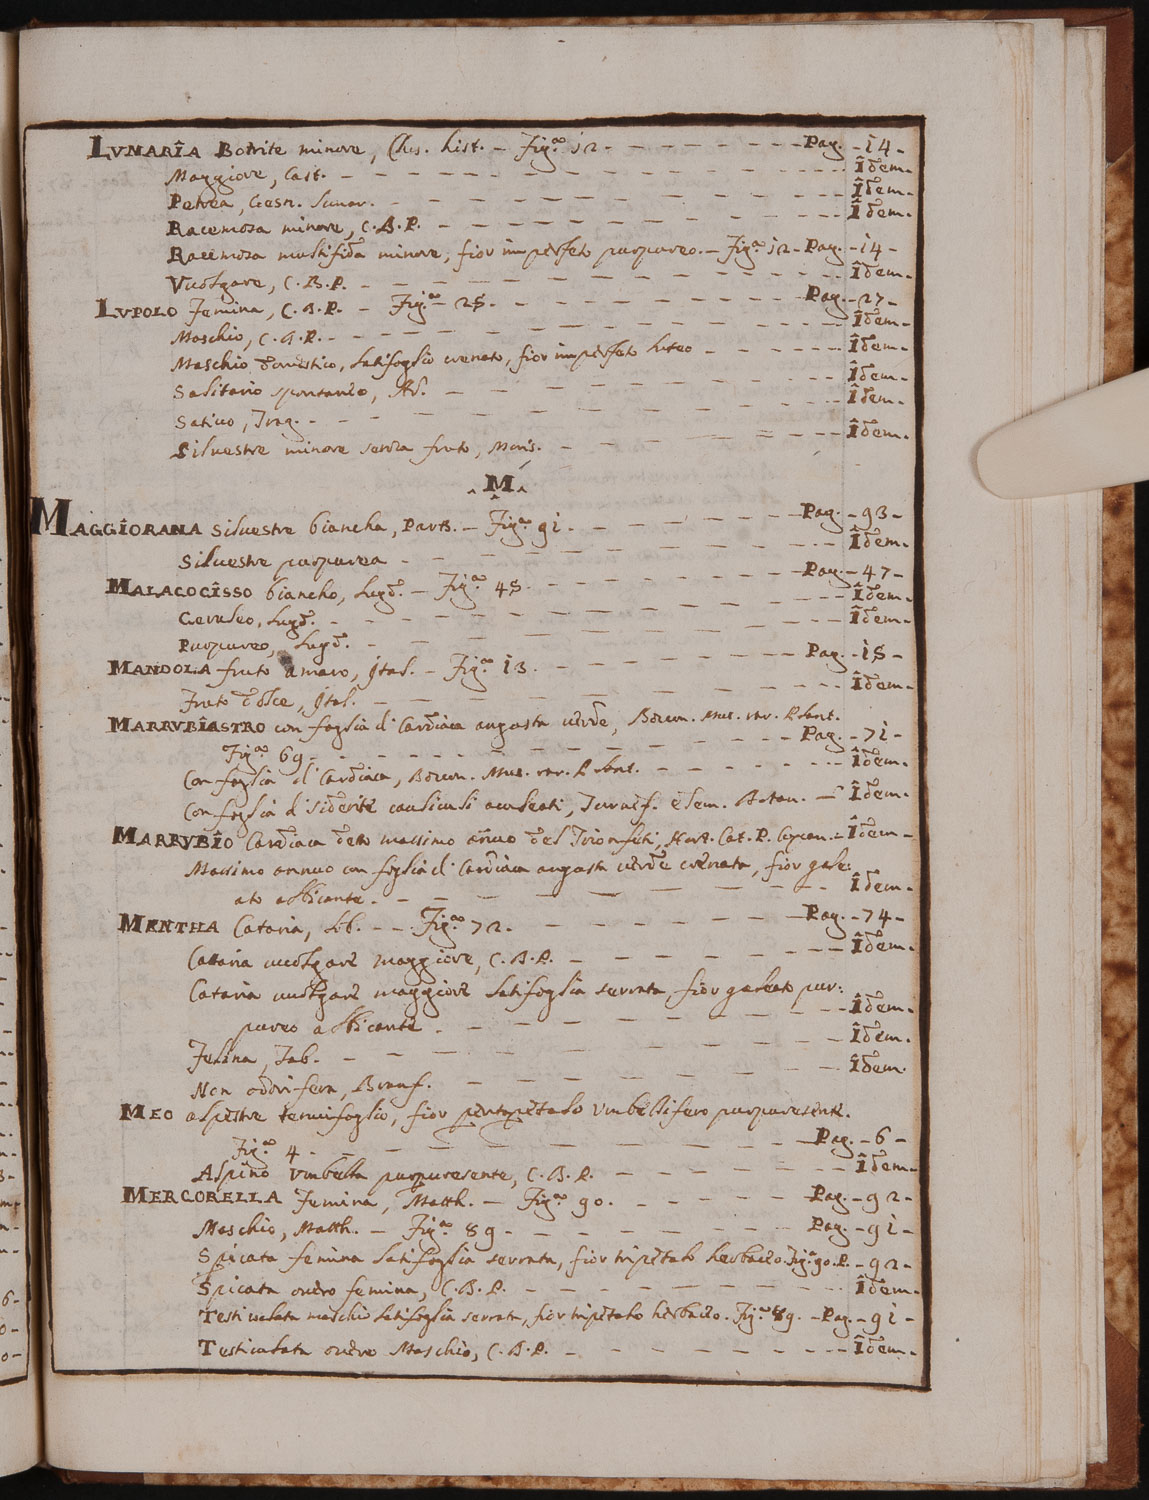 LVNARÎA Botrite minore, Clus. hist. - Fig.ª 12 - - - - - - - Pag. - 14 -
Maggiore, Cast. - - - - - - - - - - Îdem -
Petrea, Gesn. Lunar. - - - - - - - - - - Îdem -
Racemosa minore, C.B.P. - - - - - - - - - - Îdem -
Racemosa multifida minore, fior imperfeto purpureo. - Fig.ª 12 - Pag. - 14 -
Vuolgare, C.B.P. - - - - - - - - - - Îdem -
LVPOLO Femina, C.B.P. - Fig.ª - 25 - - - - - - - Pag. - 27 -
Maschio, C.B.P. - - - - - - - - - - Îdem -
Maschio domestico, latifoglio crenato, fior imperfeto luteo - - - - - - Îdem -
Salitario spontaneo, - - - - - - - - Îdem -
Satiuo, Trag. - - - - - - - - - - Îdem -
Siluestre minore senza fruto, Moris. - - - - - - Îdem -
M
MAGGÎORANA siluestre biancha, - Fig.ª 91 - - - - - - Pag. - 93 -
Siluestre purpurea - - - - - - - - - Îdem -
MALACOCÎSSO biancho, Lugd. - Fig.ª 45 - - - - - - - Pag. - 47 -
Ceruleo, Lugd. - - - - - - - - - - Îdem -
Purpureo, Lugd. - - - - - - - - - - Îdem -
MANDOLA fruto amaro, Ital. - Fig.ª 13 - - - - - - - Pag. - 15 -
Fruto dolce, Ital. - - - - - - - - - - Îdem -
MARRVBÎASTRO con foglia di Cardiaca angosta uerde, Bocon. Mus. rar. P.
Fig.ª 69 - - - - - - - - - - Pag. - 71 -
Con foglia di Cardiaca, Bocon. Mus. rar. P. - - - - - - Îdem -
Con foglia di Siderite caulicusi aculeati, Turnef. elem. Botan. - Îdem -
MARRVBÎO Cardiaca deto massimo anuo del Trionfeti, Hort. Cat. P. Cupan. - Îdem -
Massimo annuo con foglia di Cardiaca angosta uerde crenata, fior gale:
ato albicante. - - - - - - - - - - Îdem -
MENTHA Cataria, Lob. - - - Fig.ª 72 - - - - - - - Pag. - 74 -
Cataria uuolgare maggiore, C.B.P. - - - - - - - - Îdem -
Cataria uuolgare maggiore latifoglia serrata, fior galeato pur:
pureo albicante - - - - - - - - - - Îdem -
Felina, Tab. - - - - - - - - - - Îdem -
Non odorifera, Brunf. - - - - - - - - Îdem -
MEO alpestre tenuifoglio, fior pentapetalo vmbellifero purpuresente.
Fig.ª 4 - - - - - - - - - - Pag. - 6 -
Alpino vmbella purpuresente, C.B.P. - - - - - - - Îdem -
MERCORELLA Femina, Matth. - Fig.ª 90. - - - - - - Pag. - 92 -
Maschio, Matth. - Fig.ª 89 - - - - - - - Pag. - 91 -
Spicata femina latifoglia serrata, fior tripetalo herbaceo. Fig.ª 90. P. - 92 -
Spicata ouero femina, C.B.P. - - - - - - - - Îdem -
Testiculata maschio latifoglia serrata, fior tripetalo herbaceo. Fig.ª 89. - Pag. - 91 -
Testiculata ouero Maschio, C.B.P. - - - - - - - - Îdem -